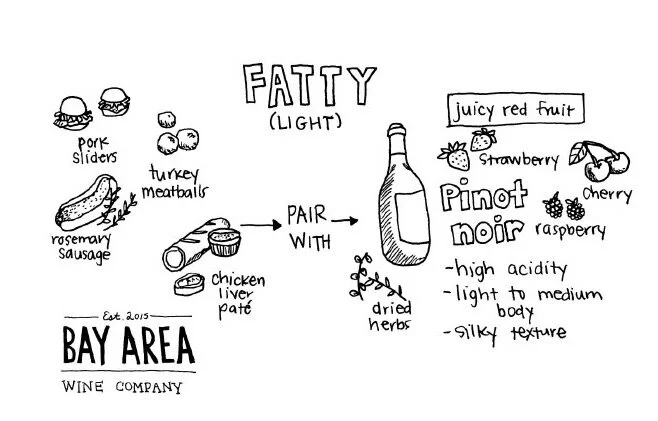 FATTY
(LIGHT)
pork
sliders
turkey
meatballs
rosemary
sausage
chicken
liver
paté
PAIR
WITH
dried
herbs
juicy red fruit
strawberry
cherry
raspberry
Pinot
noir
-high acidity
-light to medium
body
-silky texture
Est. 2015
BAY AREA
WINE COMPANY